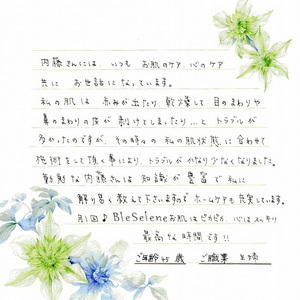 内藤さんには、いつも お肌のケア、心のケア
共に お世話になっています。
私の肌は 赤みが出たり、乾燥して 目のまわりや
鼻のまわりの皮が 剥けてしまったり…と トラブルが
多かったのですが、その時々の 私の肌状態に合わせて
施術をして頂く事により、トラブルが かなり少なくなりました。
勤勉な内藤さんは 知識が豊富で 私に
解り易く教えて下さいますので ホームケアも充実しています。
月1回♪ BleSelene お肌はピカピカ、心はスッキリ
最高な時間です!!
ご年齢 45 歳 ご職業 主婦